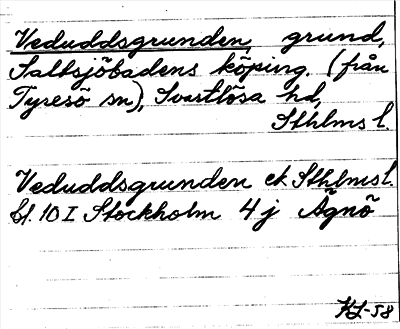 Veduddsgrunden, grund,
Saltsjöbadens köping. (från
Tyresö sn), Svartlösa hd,
Sthlms l.
Veduddsgrunden ek Sthlms l.
bl. 10 I Stockholm 4 j Ägnö
KL-58